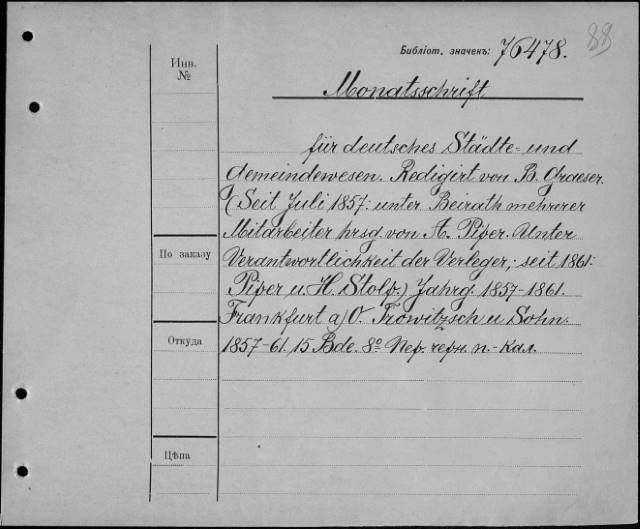 88
Библіот. значекъ: 76478.
Инв.
№
Monatsschrift
für deutsches Städte- und
Gemeindewesen. Redigirt von B. Graeser.
(Seit Juli 1857: unter Beirath mehrerer
Mitarbeiter hrsg. von A. Piper. Unter
По заказу
Verantwortlichkeit der Verleger; seit 1861:
Piper u. H. Stolp.) Jahrg. 1857-1861.
Frankfurt a/O. Trowitzsch u. Sohn.
Откуда
1857-61. 15 Bde. 8º Пер. черн. п.-кал.
Цѣна